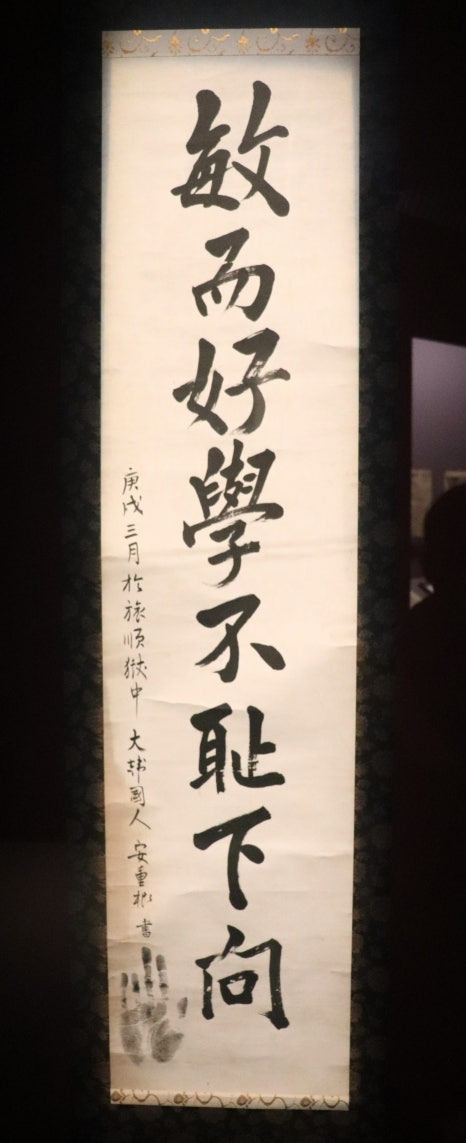 敏而好學不耻下問
庚戌三月於旅順獄中 大韓國人 安重根 書